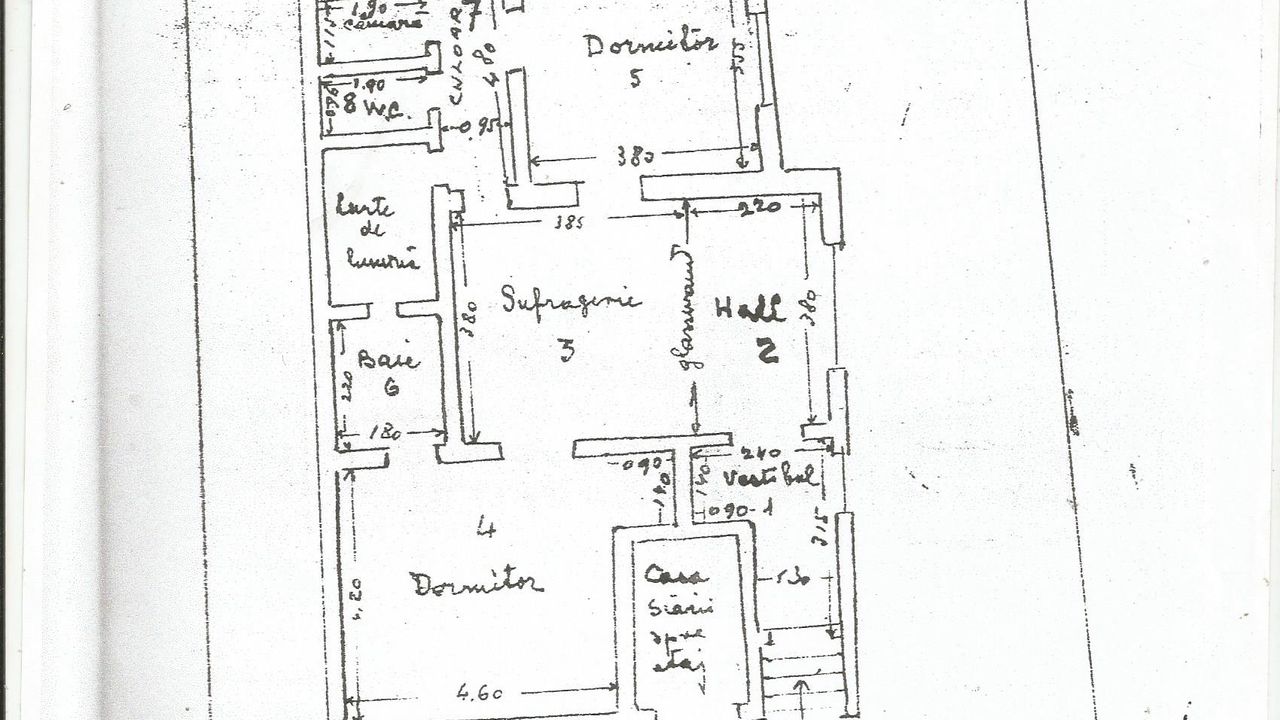 1.90
camara
1.15
7
CULOAR
4.80
Dormitor
5
555
1.90
0.90
8 W.C.
0.95
380
Curte
de
lumină
385
220
380
Sufragerie
3
glasvand
Hall
2
380
Baie
6
220
180
090
140
240
150
Vestibul
090
1
315
130
4
Dormitor
4.20
4.60
Casa
Scării
spre
etaj